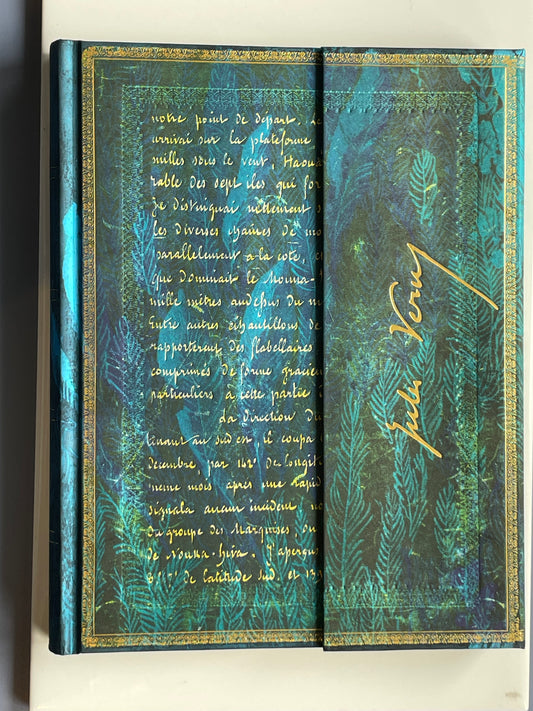 notre point de depart. Le
arrivai sur la plateforme
milles sous le vent, Haoua
rable des sept iles qui for
Je distinguai nettement
les diverses chaines de mo
parallelement a la cote,
que dominait le Mouna-
mille mètres audessus du n
Entre autres échantillons de
rapporterent des flabellaires
comprimes de forme gracieu
particuliers à cette partie
La direction du
tenant au sud est, il coupa
decembre, par 142° de longit
meme mois après une rapid
signala aucun incident, no
du groupe des Marquises, ou
de Nouka-hiva. J'aperçus
8°57' de latitude sud et 139
Jules Verne